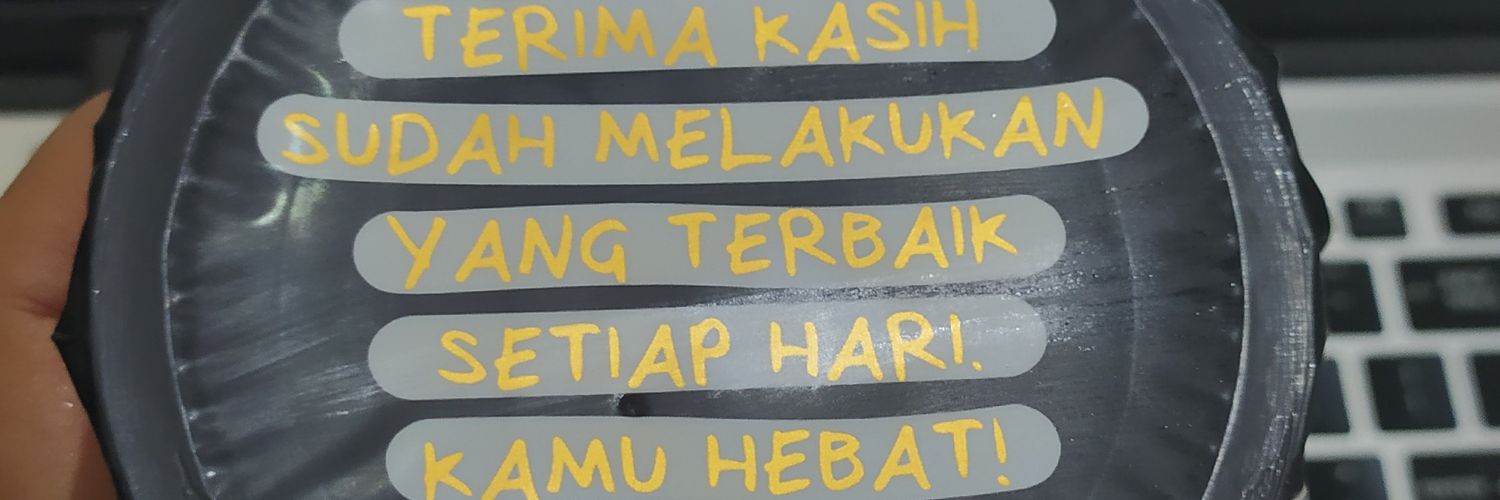 TERIMA KASIH
SUDAH MELAKUKAN
YANG TERBAIK
SETIAP HARI.
KAMU HEBAT!